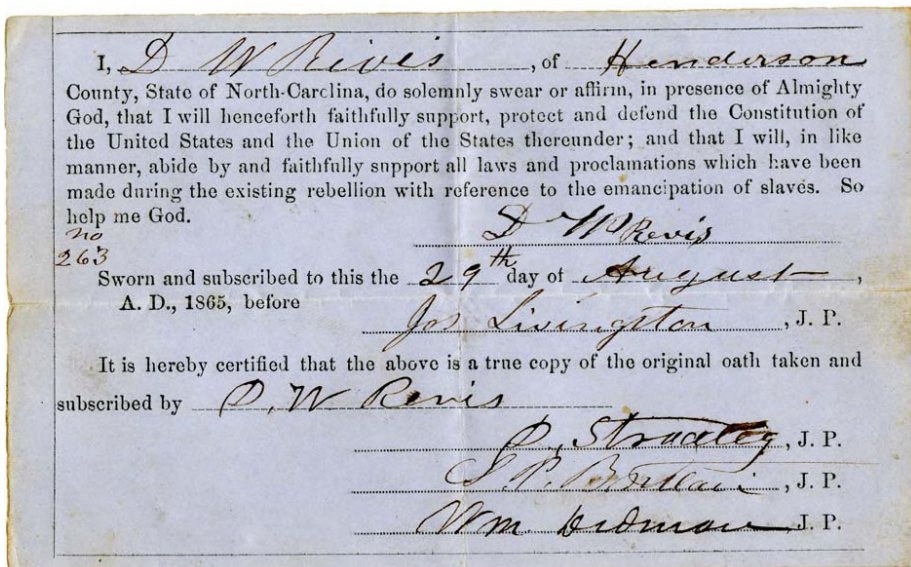 I, D W Rivis, of Henderson
County, State of North-Carolina, do solemnly swear or affirm, in presence of Almighty
God, that I will henceforth faithfully support, protect and defend the Constitution of
the United States and the Union of the States thereunder; and that I will, in like
manner, abide by and faithfully support all laws and proclamations which have been
made during the existing rebellion with reference to the emancipation of slaves. So
help me God.
D W Revis
no
263
Sworn and subscribed to this the 29th day of August,
A. D., 1865, before
Jos Livingston, J. P.
It is hereby certified that the above is a true copy of the original oath taken and
subscribed by D. W Revis
Stradley, J. P.
P. Brittain, J. P.
Wm. , J. P.